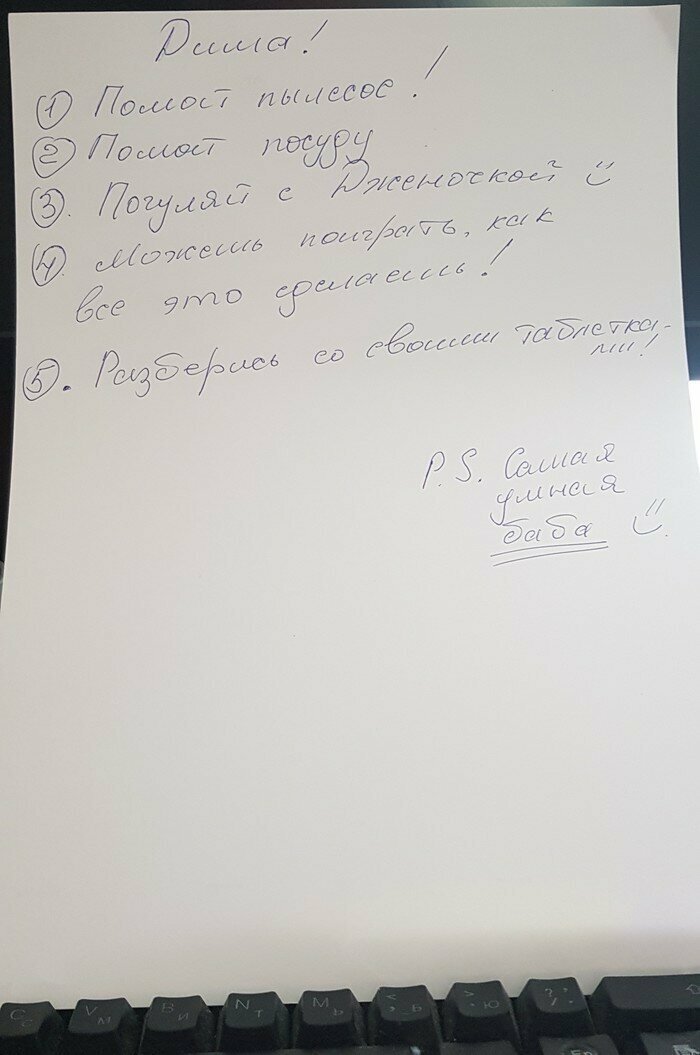 Дима!
① Помой пылесос!
② Помой посуду
③. Погуляй с Дженочкой
④. Можешь поиграть, как
все это сделаешь!
⑤. Разберись со своими таблетка-
ми!
P.S. Самая
умная
баба
C С V М B И N Т M Ь < , Б > . Ю ? / .